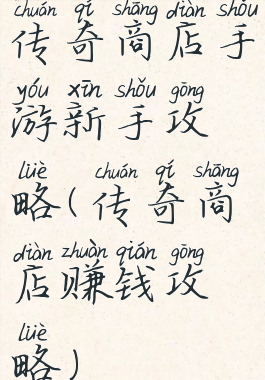 chuán qí shāng diàn shǒu
传奇商店手
yóu xīn shǒu gōng
游新手攻
lüè chuán qí shāng
略(传奇商
diàn zhuàn qián gōng
店赚钱攻
lüè
略)